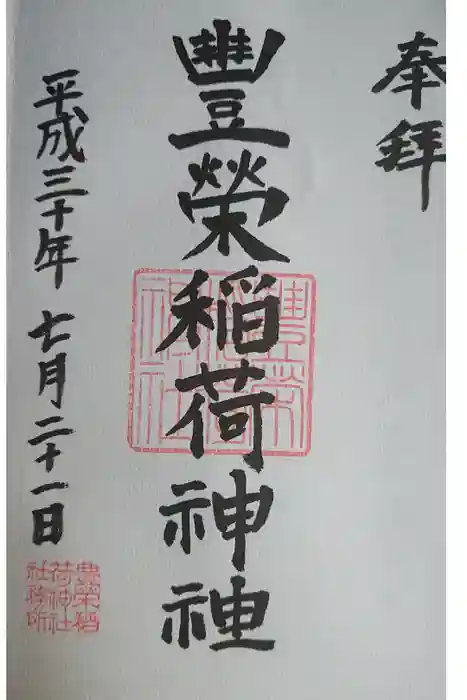 奉拜
豐榮稲荷神社
豊榮稲荷神社
平成三十年七月二十一日
豊榮稲
荷神社
社務所